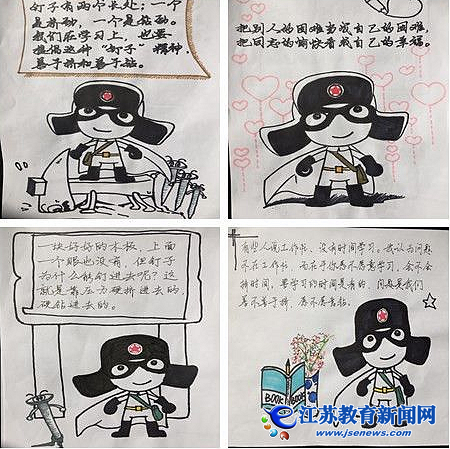 钉子有两个长处：一个
是挤劲，一个是钻劲。
我们在学习上，也要
提倡这种“钉子”精神，
善于挤和善于钻。
把别人的困难当成自己的困难，
把同志的愉快看成自己的幸福。
一块好好的木板，上面
一个眼也没有，但钉子
为什么能钉进去呢？这
就是靠压力硬挤进去的
硬钻进去的
有些人说工作忙，没有时间学习。我认为问题
不在工作忙，而在于你愿不愿意学习，会不会
挤时间，要学习的时间是有的，问题是我们
善不善于挤，愿不愿意钻。
BOOK
BOOK
江苏教育新闻网
www.jsenews.com